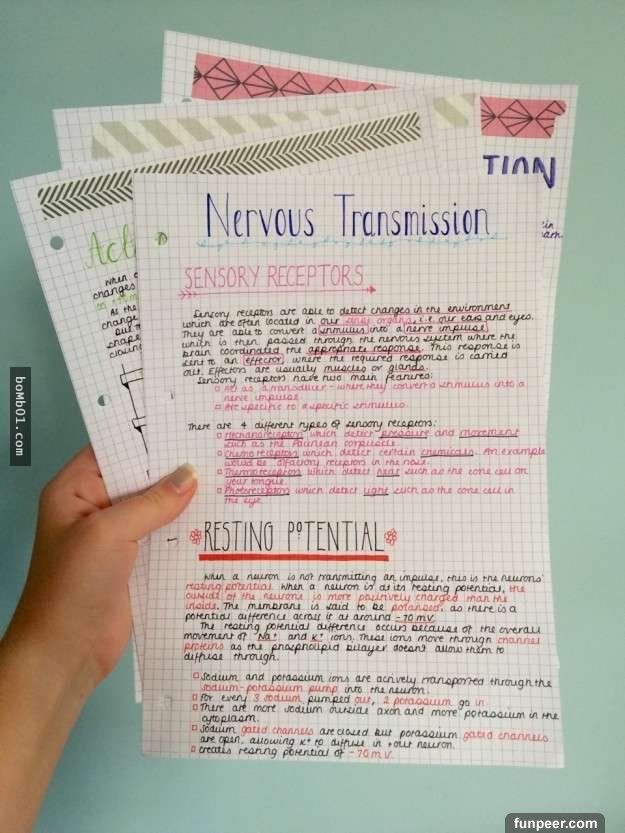 TION
Nervous Transmission
SENSORY RECEPTORS
Sensory receptors are able to detect changes in the environment
which are often located in our sense organs, i.e. our ears and eyes.
They are able to convert a stimulus into a nerve impulse
which is then passed through the nervous system where the
brain coordinated the appropriate response. This response is
sent to an effector, where the required response is carried
out. Effectors are usually muscles or glands.
Sensory receptors have two main features:
Act as a transducer - where they convert a stimulus into a
nerve impulse
Are specific to a specific stimulus
There are 4 different types of sensory receptors:
Mechanoreceptors which detect pressure and movement
such as the Pacinean corpuscle
Chemoreceptors which detect certain chemicals. An example
would be olfactory receptors in the nose.
Thermoreceptors which detect heat such as the cone cell on
your tongue.
Photoreceptors which detect light such as the cone cell in
the eye.
RESTING POTENTIAL
When a neuron is not transmitting an impulse, this is the neurons'
resting potential. When a neuron is at its resting potential, the
outside of the neurone is more positively charged than the
inside. The membrane is said to be polarised, as there is a
potential difference across it at around -70 mV.
The resting potential difference occurs because of the overall
movement of Na+ and K+ ions. These ions move through channel
proteins as the phospholipid bilayer doesn't allow them to
diffuse through.
Sodium and potassium ions are actively transported through the
sodium-potassium pump into the neuron.
For every 3 sodium pumped out, 2 potassium go in
There are more sodium outside axon and more potassium in the
cytoplasm.
Sodium gated channels are closed but potassium gated channels
are open, allowing K+ to diffuse in + out neuron.
creates resting potential of -70 mV.
Act
When
changes
As the
change
boMb01.com
funpeer.com